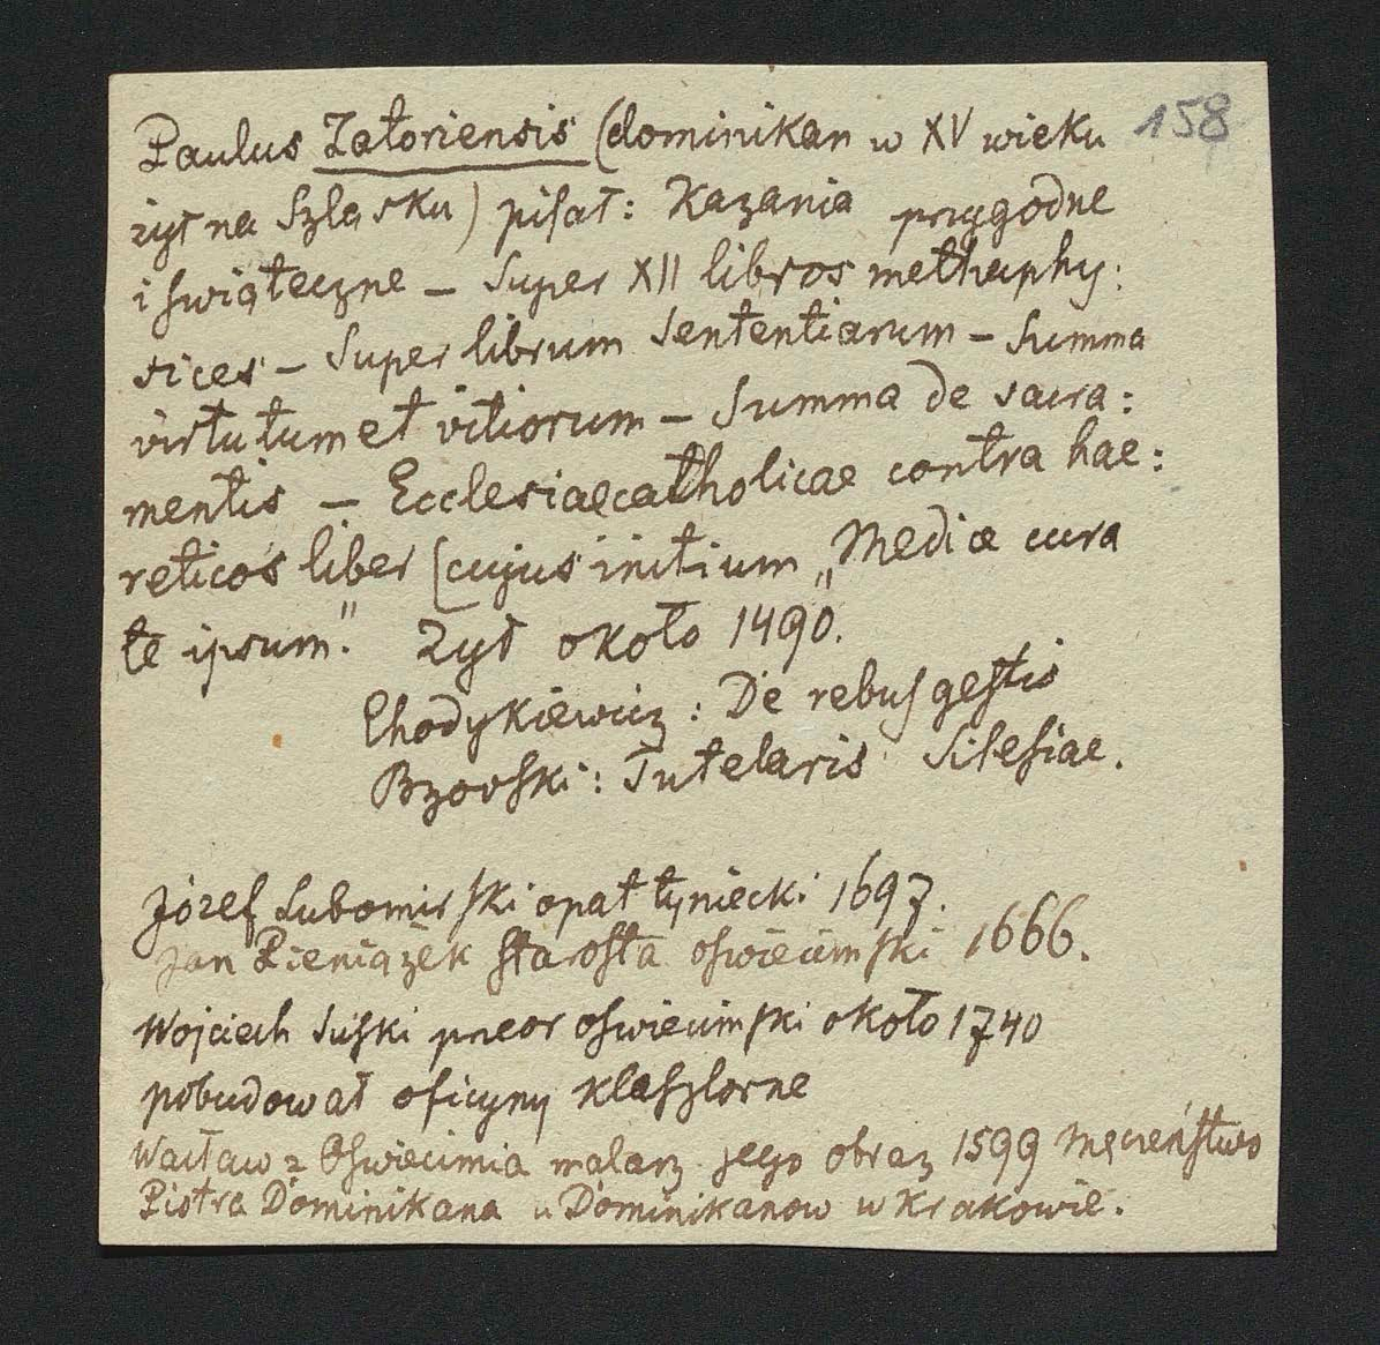 Paulus Zatoriensis (dominikan w XV wieku 158
żył na Szląsku) pisał: Kazania przygodne
i świąteczne – Super XII libros methaphy:
sices – Super librum Sententiarum – Summa
virtutum et vitiorum – Summa de sacra:
mentis – Ecclesiae catholicae contra hae:
reticos liber (cujus initium „Medice cura
te ipsum." Żył około 1490.
Chodykiewicz: De rebus gestis
Bzovski: Tutelaris Silesiae.
Józef Lubomirski opat tyniecki 1697.
Jan Pieniążek starosta oświecimski 1666.
Wojciech Suski preor oswiecimski około 1740
pobudował oficyny klasztorne
Wacław z Oświecimia malarz jego obraz 1599 Męczeństwo
Piotra Dominikana u Dominikanow w Krakowie.